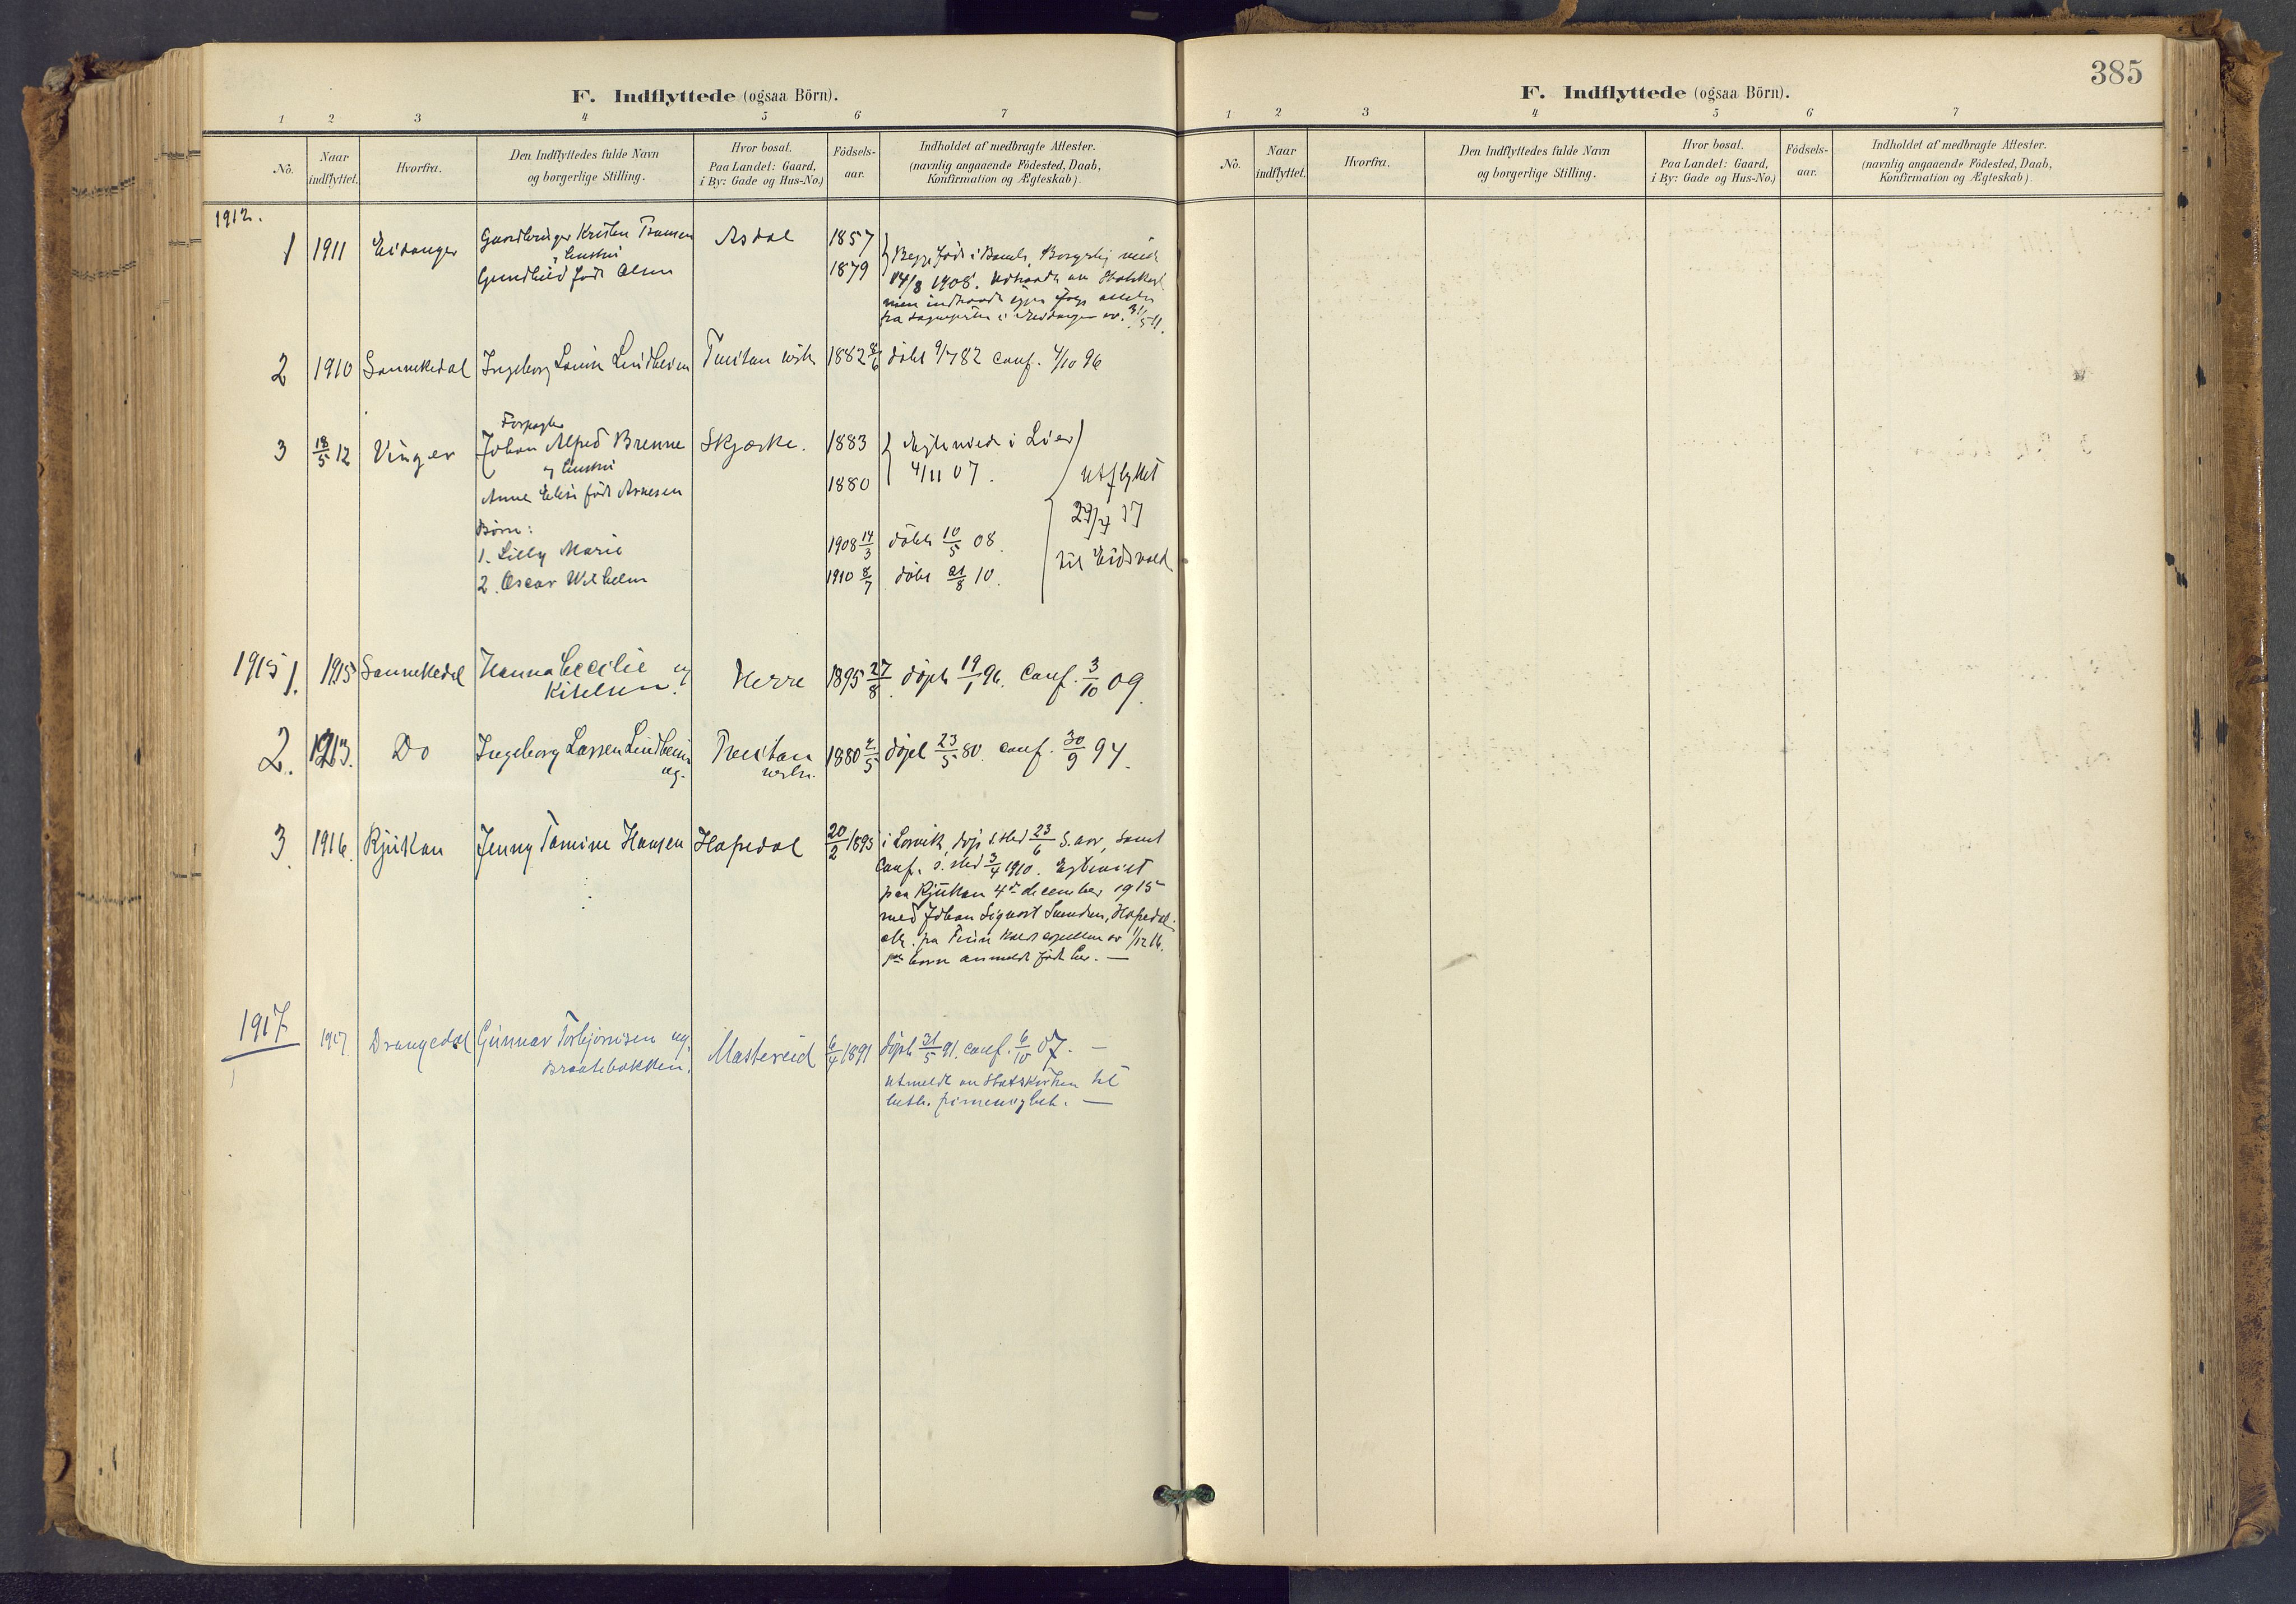 385
F. Indflyttede (ogsaa Börn).
1 2 3 4 5 6 7
No. Naar indflyttet. Hvorfra. Den Indflyttedes fulde Navn og borgerlige Stilling. Hvor bosat. Paa Landet: Gaard, i By: Gade og Hus-No.) Födsels-aar. Indholdet af medbragte Attester. (navnlig angaaende Födested, Daab, Konfirmation og Ægteskab).
1912.
1 1911 Eidanger Gaardbruger Kristen Asdal 1857
og hustru
Gunhild født Olsen 1879
Begge født i Bamle, Borgerlig viede
14/8 1908. Udtraadt av Statskirk
31/5 11.
2 1910 Sannikedal Ingeborg Lovise Lindheim Treitan 1882 døbt 9/7 82 conf. 4/10 96
Forpagter
3 18/5 12 Vinger Johan Alfred Brenne Skjærke. 1883 Ægteviede i Lier
og hustru 4/11 07.
Anne Elise født Arnesen 1880 utflyttet
Børn: 29/4 17
1. Lilly Marie 1908 14/3 døbt 10/5 08.
til Eidsvold
2. Oscar Wilhelm 1910 8/7 døbt 21/8 10.
1915 1. 1915 Sannikedal Hanna Cecilie ug
Kittelsen. Herre 1895 27/8 døpt 19/1 96. Conf. 3/10 09.
2. 1913. Do Ingeborg Larsen Lindheim Treitan 1880 2/5 døpt 23/5 80. conf. 30/9 94.
ug.
3. 1916. Rjukan Jenny Tomine Hansen Hafsdal 20/2 1895 i Larvik, døpt s. sted 23/6 s. aar, samt
Conf. s. sted 3/4 1910. Egteviet
paa Rjukan 4de december 1915
med Johan Sigvart Hafsdal.
1/12 16.
barn anmeldt født her. —
1917
1 1917. Drangedal Gunnar Torbjørnsen ug. Mastereid 6/4 1891 døpt 31/5 91. conf. 6/10 07. —
Braatebakken.
utmeldt av Statskirken til
luth. frimenighet. —
F. Indflyttede (ogsaa Börn).
1 2 3 4 5 6 7
No. Naar indflyttet. Hvorfra. Den Indflyttedes fulde Navn og borgerlige Stilling. Hvor bosat. Paa Landet: Gaard, i By: Gade og Hus-No.) Födsels-aar. Indholdet af medbragte Attester. (navnlig angaaende Födested, Daab, Konfirmation og Ægteskab).